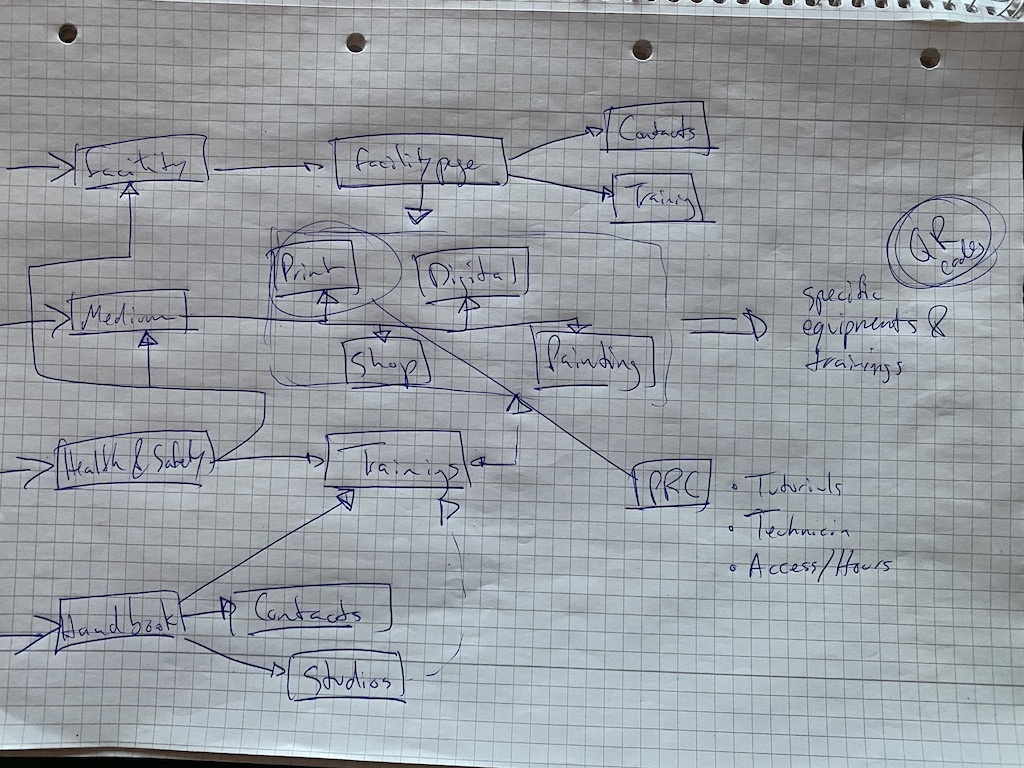 Contacts
Facility
Facility page
Training
QR
codes
Print
Digital
specific
equipments &
trainings
Medium
Shop
Painting
Health & Safety
Trainings
PRC
• Tutorials
• Technicin
• Access/Hours
Handbook
Contacts
Studios